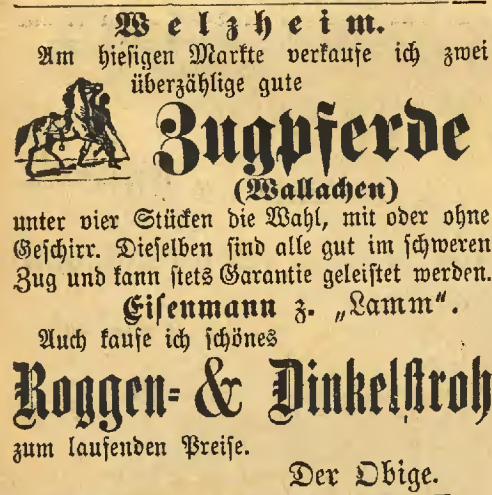 Welzheim.
Am hiesigen Markte verkaufe ich zwei
überzählige gute
Zugpferde
(Wallachen)
unter vier Stücken die Wahl, mit oder ohne
Geschirr. Dieselben sind alle gut im schweren
Zug und kann stets Garantie geleistet werden.
Eisenmann z. „Lamm".
Auch kaufe ich schönes
Roggen- & Dinkelstroh
zum laufenden Preise.
Der Obige.